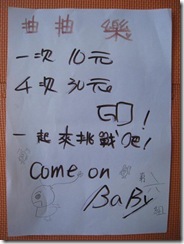 抽抽樂
一次 10元
4次 30元
GO!
一起來挑戰吧!
Come on
BaBy